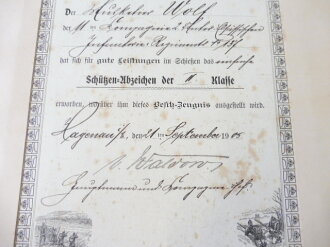 Der Musketier Wolf
der 11ten Kompagnie 2. Unter Elsässischen
Infanterie Regiments No 137
der sich für gute Leistungen im Schießen das
Schützen-Abzeichen der II Klasse
erworben, worüber ihm dieses Besitz-Zeugnis ausgestellt wird.
Hagenau i/E den 21ten September 1905
v. Waldow
Hauptmann und Kompagnie Chef.